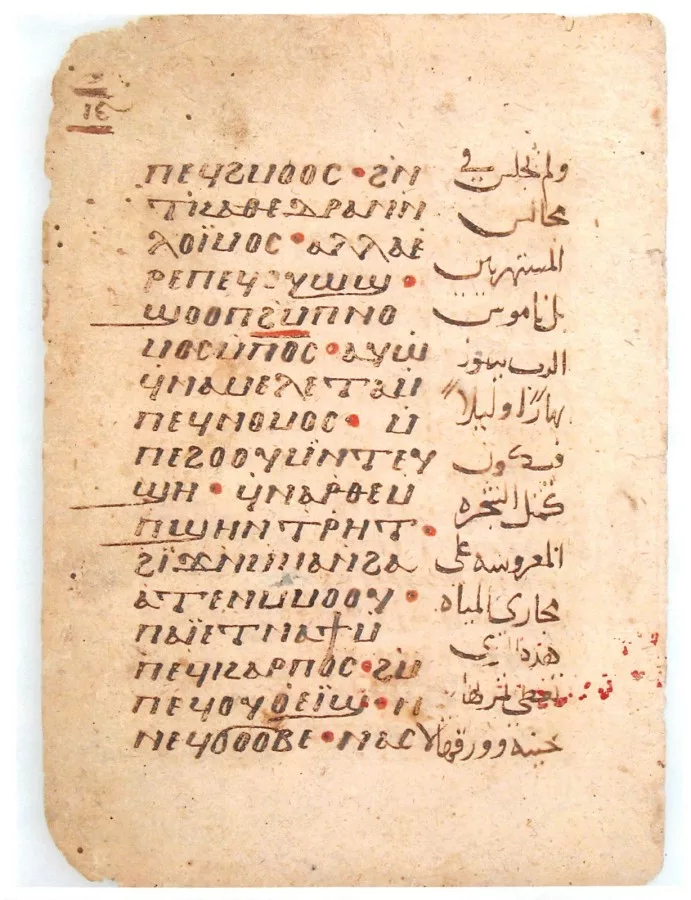 ⲓⲉ
ⲡⲉϥϩⲙⲟⲟⲥ · ϩⲛ
ⲧⲕⲁⲑⲉⲇⲣⲁⲛⲛ
ⲗⲟⲓ̈ⲙⲟⲥ · ⲁⲗⲗⲁⲉ
ⲣⲉⲡⲉϥⲟⲩⲱϣ ·
ϣⲟⲟⲡϩⲙⲡⲛⲟ
ⲙⲟⲥⲙⲡⲟⲥ · ⲁⲩⲱ
ϥⲛⲁⲙⲉⲗⲉⲧⲁⲙ
ⲡⲉϥⲛⲟⲙⲟⲥ · ⲙ
ⲡⲉϩⲟⲟⲩⲙⲛⲧⲉⲩ
ϣⲏ · ϥⲛⲁⲣⲑⲉⲙ
ⲡϣⲏⲛⲛⲧⲣⲏⲧ ·
ϩⲓ̈ϫⲛⲙⲙⲁⲛϩⲁ
ⲁⲧⲉⲛⲙⲙⲟⲟⲩ ·
ⲡⲁⲓ̈ⲉⲧⲛⲁϯⲙ
ⲡⲉϥⲕⲁⲣⲡⲟⲥ · ϩⲙ
ⲡⲉϥⲟⲩⲟⲉⲓ̈ϣ · ⲛ
ⲛⲉϥϭⲟⲟⲃⲉ · ⲛⲁⲥ
ولم يجلس في
مجالس
المستهزيين
بل ناموس
الرب
نهارًا وليلاً
فيكون
كمثل الشجره
المغروسه على
مجاري المياه
هذه التي
تعطي
حينه وورقها لا